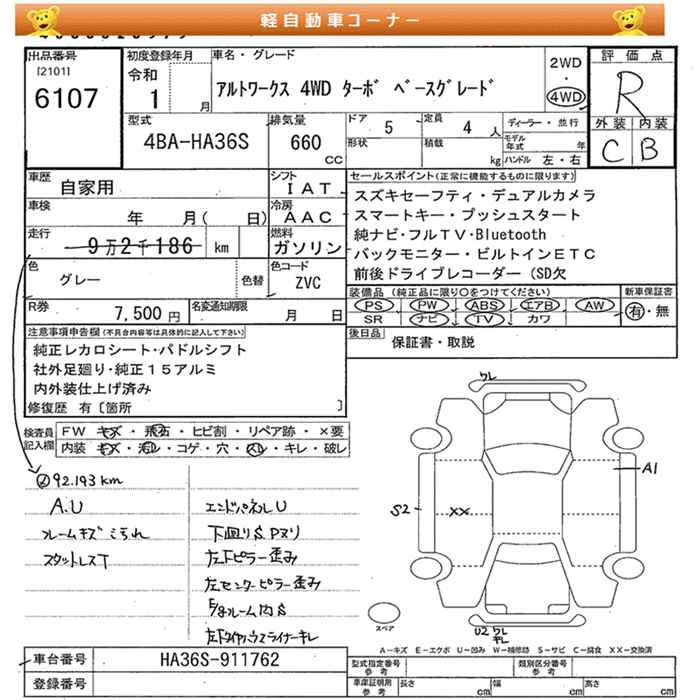 軽自動車コーナー
出品番号
[2101]
6107
初度登録年月
令和
1 月
車名・グレード
アルトワークス 4WD ターボ ベースグレード
2WD
・
4WD
評価点
R
外装 内装
C B
型式
4BA-HA36S
排気量
660
CC
ドア 5
定員 4 人
ディーラー・並行
形状
積載 kg
モデル年式 年
ハンドル 左・右
車歴
自家用
シフト
IAT
セールスポイント(正常に機能するものに限ります)
スズキセーフティ・デュアルカメラ
スマートキー・プッシュスタート
純ナビ・フルTV・Bluetooth
バックモニター・ビルトインETC
前後ドライブレコーダー(SD欠
車検
年 月( 日)
冷房
AAC
走行
9万2千186 km
燃料
ガソリン
色
グレー
色替
色コード
ZVC
装備品(純正品に限り○をつけてください)
PS PW ABS エアB AW
SR ナビ TV カワ
新車保証書
有・無
R券
7,500円
名変通知期限
月 日
後日品
保証書・取説
注意事項申告欄(不具合内容等は具体的に記入して下さい)
純正レカロシート・パドルシフト
社外足廻り・純正15アルミ
内外装仕上げ済み
修復歴 有〔箇所 〕
検査員記入欄
FW キズ・飛石・ヒビ割・リペア跡・×要
内装 キズ・汚レ・コゲ・穴・スレ・キレ・破レ
92.193km
A.U
フレームキズこちれ
スタットレスT
エンドパネルU
下廻りS Pヌリ
左Fピラー歪み
左センターピラー歪み
フレーム内S
左Fタイヤハウスライナーキレ
ワレ
A1
S2
XX
U2 ワレ
キレ
スペア
A-キズ E-エクボ U-凹み W-補修跡 S-サビ C-腐食 XX-交換済
車台番号
HA36S-911762
登録番号
型式指定番号
参考
類別区分番号
参考
車庫証明用
参考
長さ cm
幅 cm
高さ cm